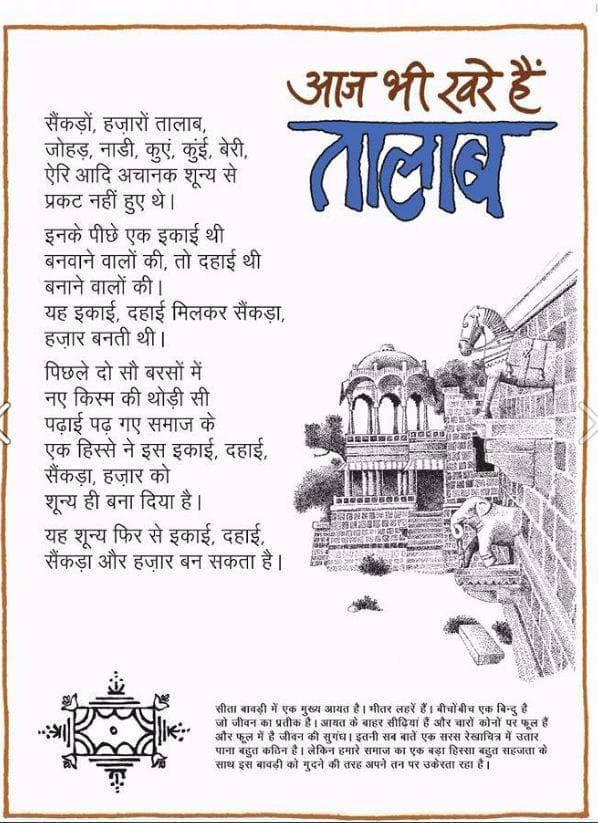 आज भी खरे हैं
तालाब
सैंकड़ों, हज़ारों तालाब,
जोहड़, नाडी, कुएं, कुंई, बेरी,
ऐरि आदि अचानक शून्य से
प्रकट नहीं हुए थे।
इनके पीछे एक इकाई थी
बनवाने वालों की, तो दहाई थी
बनाने वालों की।
यह इकाई, दहाई मिलकर सैंकड़ा,
हज़ार बनती थी।
पिछले दो सौ बरसों में
नए किस्म की थोड़ी सी
पढ़ाई पढ़ गए समाज के
एक हिस्से ने इस इकाई, दहाई,
सैंकड़ा, हज़ार को
शून्य ही बना दिया है।
यह शून्य फिर से इकाई, दहाई,
सैंकड़ा और हज़ार बन सकता है।
सीता बावड़ी में एक मुख्य आयत है। भीतर लहरें हैं। बीचोंबीच एक बिन्दु है
जो जीवन का प्रतीक है। आयत के बाहर सीढ़ियां हैं और चारों कोनों पर फूल हैं
और फूल में है जीवन की सुगंध। इतनी सब बातें एक सरस रेखाचित्र में उतार
पाना बहुत कठिन है। लेकिन हमारे समाज का एक बड़ा हिस्सा बहुत सहजता के
साथ इस बावड़ी को गुदने की तरह अपने तन पर उकेरता रहा है।